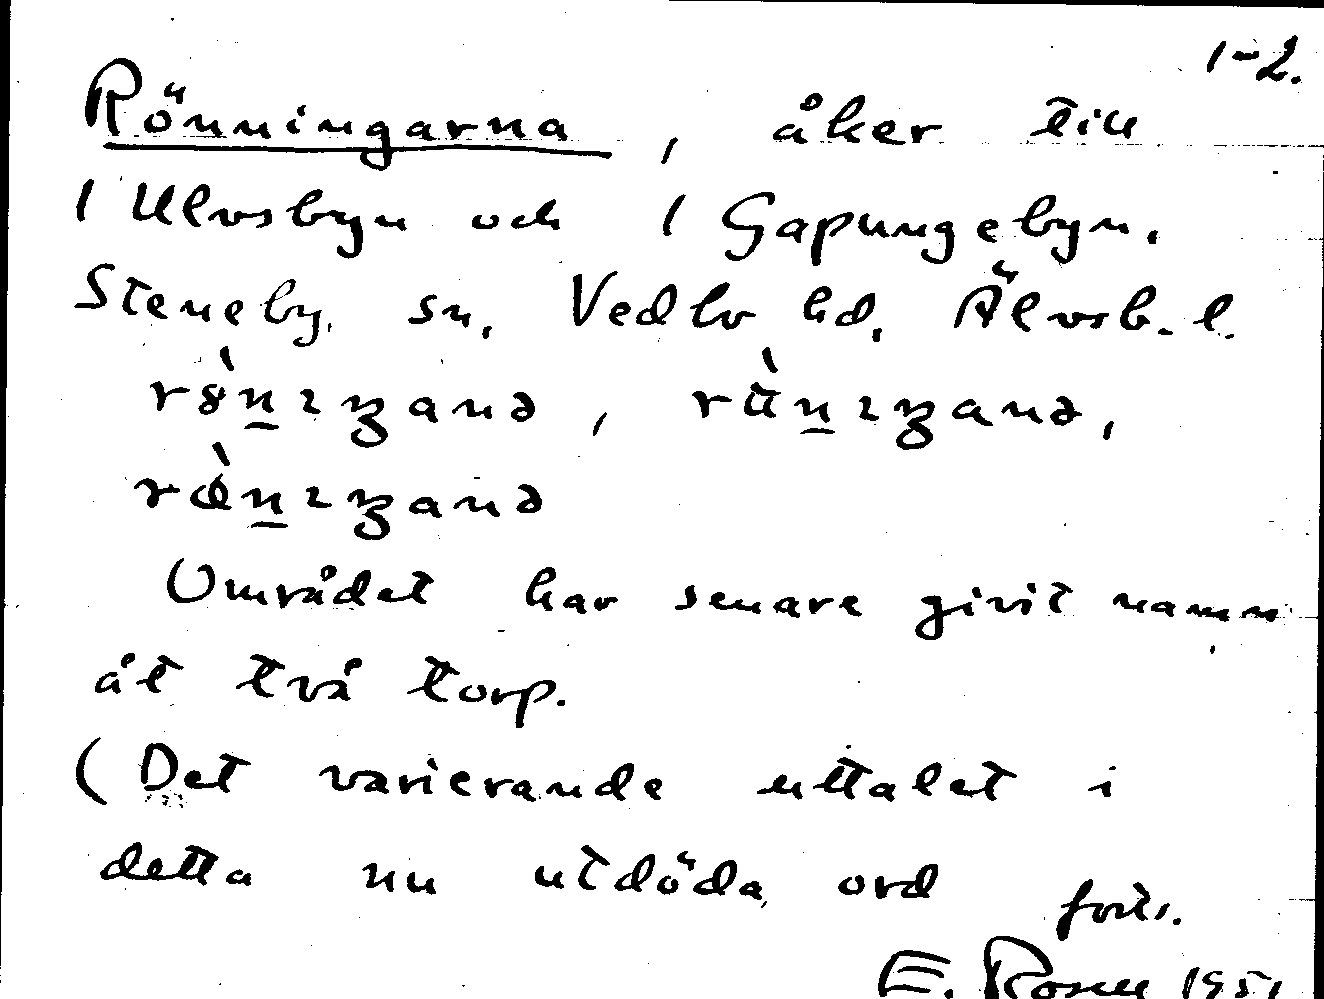 1-2.
Rönningarna, åker till
1 Ulvsbyn och 1 Gapungebyn.
Steneby sn, Vedbo hd, Älvsb. l.
Området har senare givit namn
åt två torp.
(Det varierande uttalet i
detta nu utdöda ord forts.
E. Rosell 1951